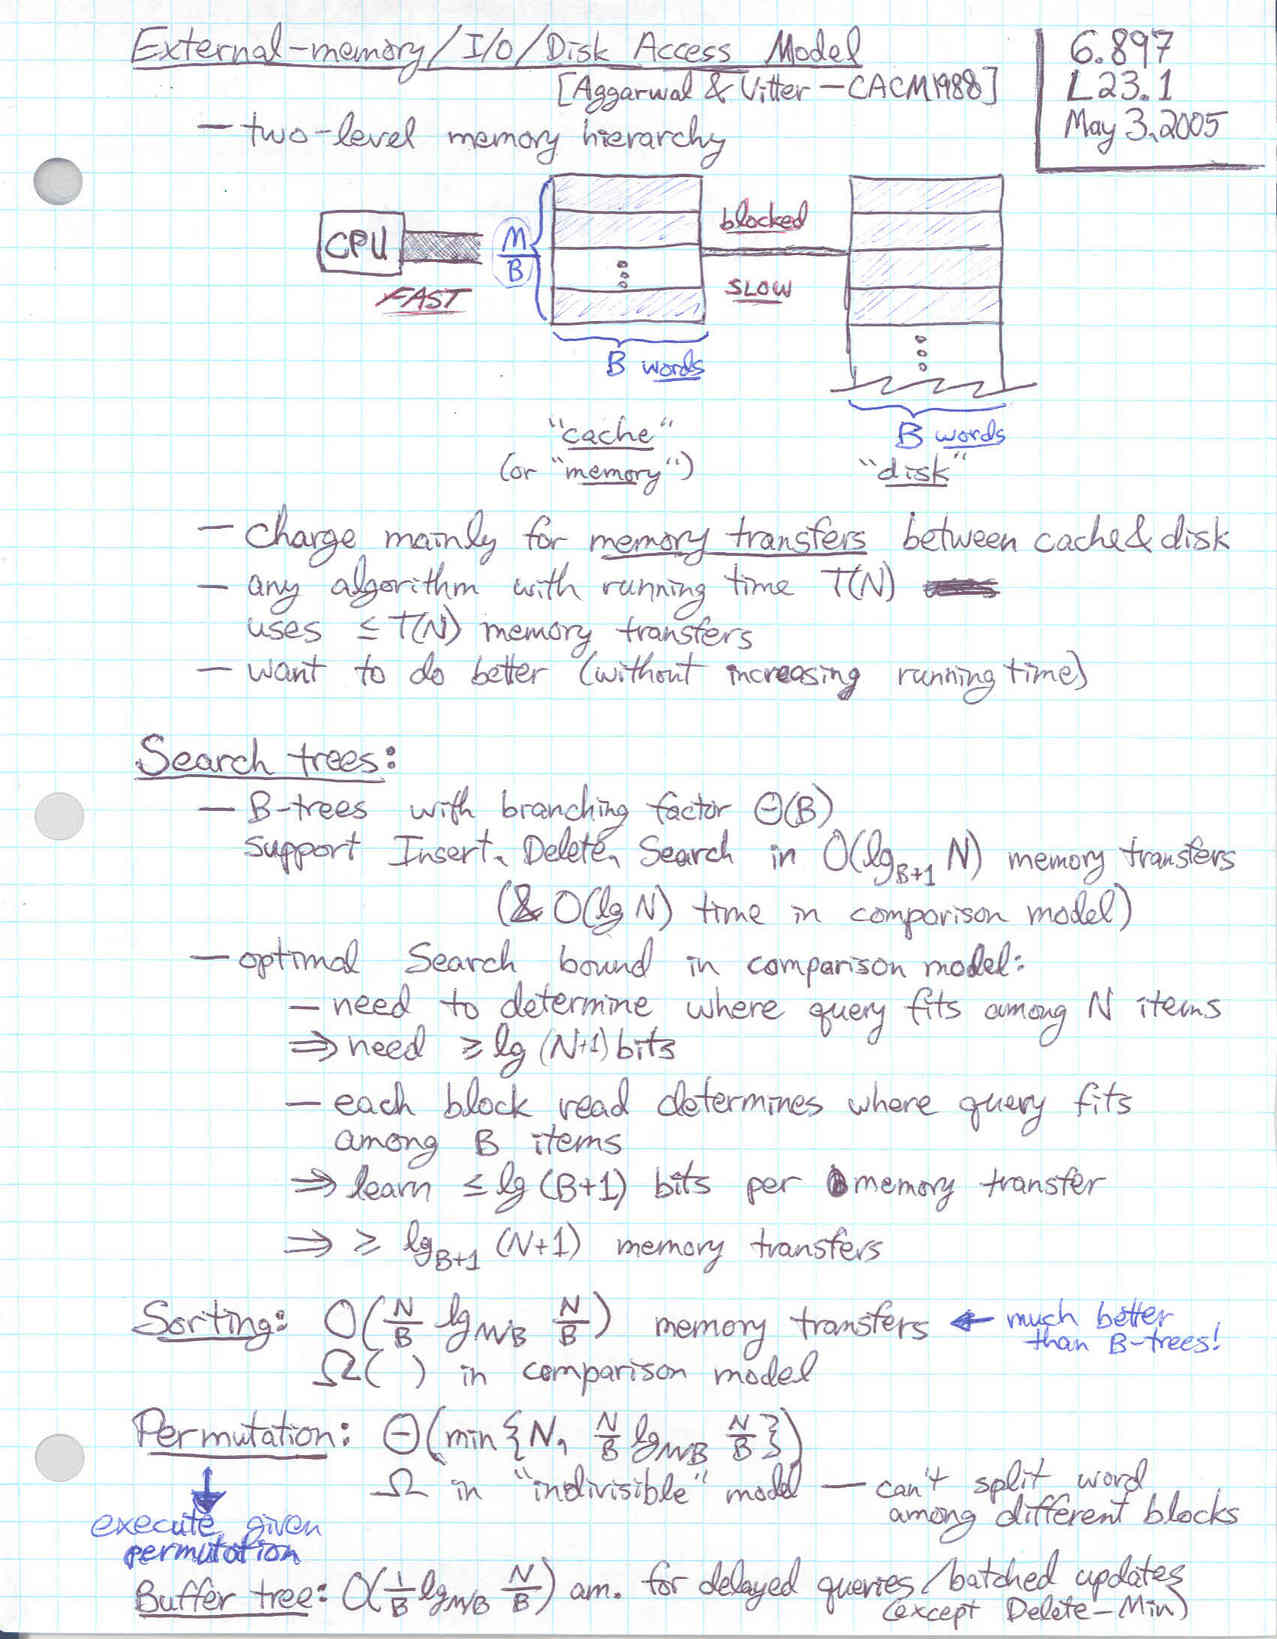 External-memory/I/O/Disk Access Model
[Aggarwal & Vitter — CACM 1988]
6.897
L23.1
May 3, 2005
— two-level memory hierarchy
CPU
FAST
M/B
blocked
SLOW
B words
B words
"cache"
(or "memory")
"disk"
— charge mainly for memory transfers between cache & disk
— any algorithm with running time T(N)
uses ≤ T(N) memory transfers
— want to do better (without increasing running time)
Search trees:
— B-trees with branching factor Θ(B)
support Insert, Delete, Search in O(lg_{B+1} N) memory transfers
(& O(lg N) time in comparison model)
— optimal Search bound in comparison model:
— need to determine where query fits among N items
⇒ need ≥ lg (N+1) bits
— each block read determines where query fits
among B items
⇒ learn ≤ lg (B+1) bits per memory transfer
⇒ ≥ lg_{B+1} (N+1) memory transfers
Sorting: O(N/B lg_{M/B} N/B) memory transfers ← much better
than B-trees!
Ω( ) in comparison model
Permutation: Θ(min{N, N/B lg_{M/B} N/B})
Ω in "indivisible" model — can't split word
among different blocks
↓
execute given
permutation
Buffer tree: O(1/B lg_{M/B} N/B) am. for delayed queries/batched updates
(except Delete-Min)